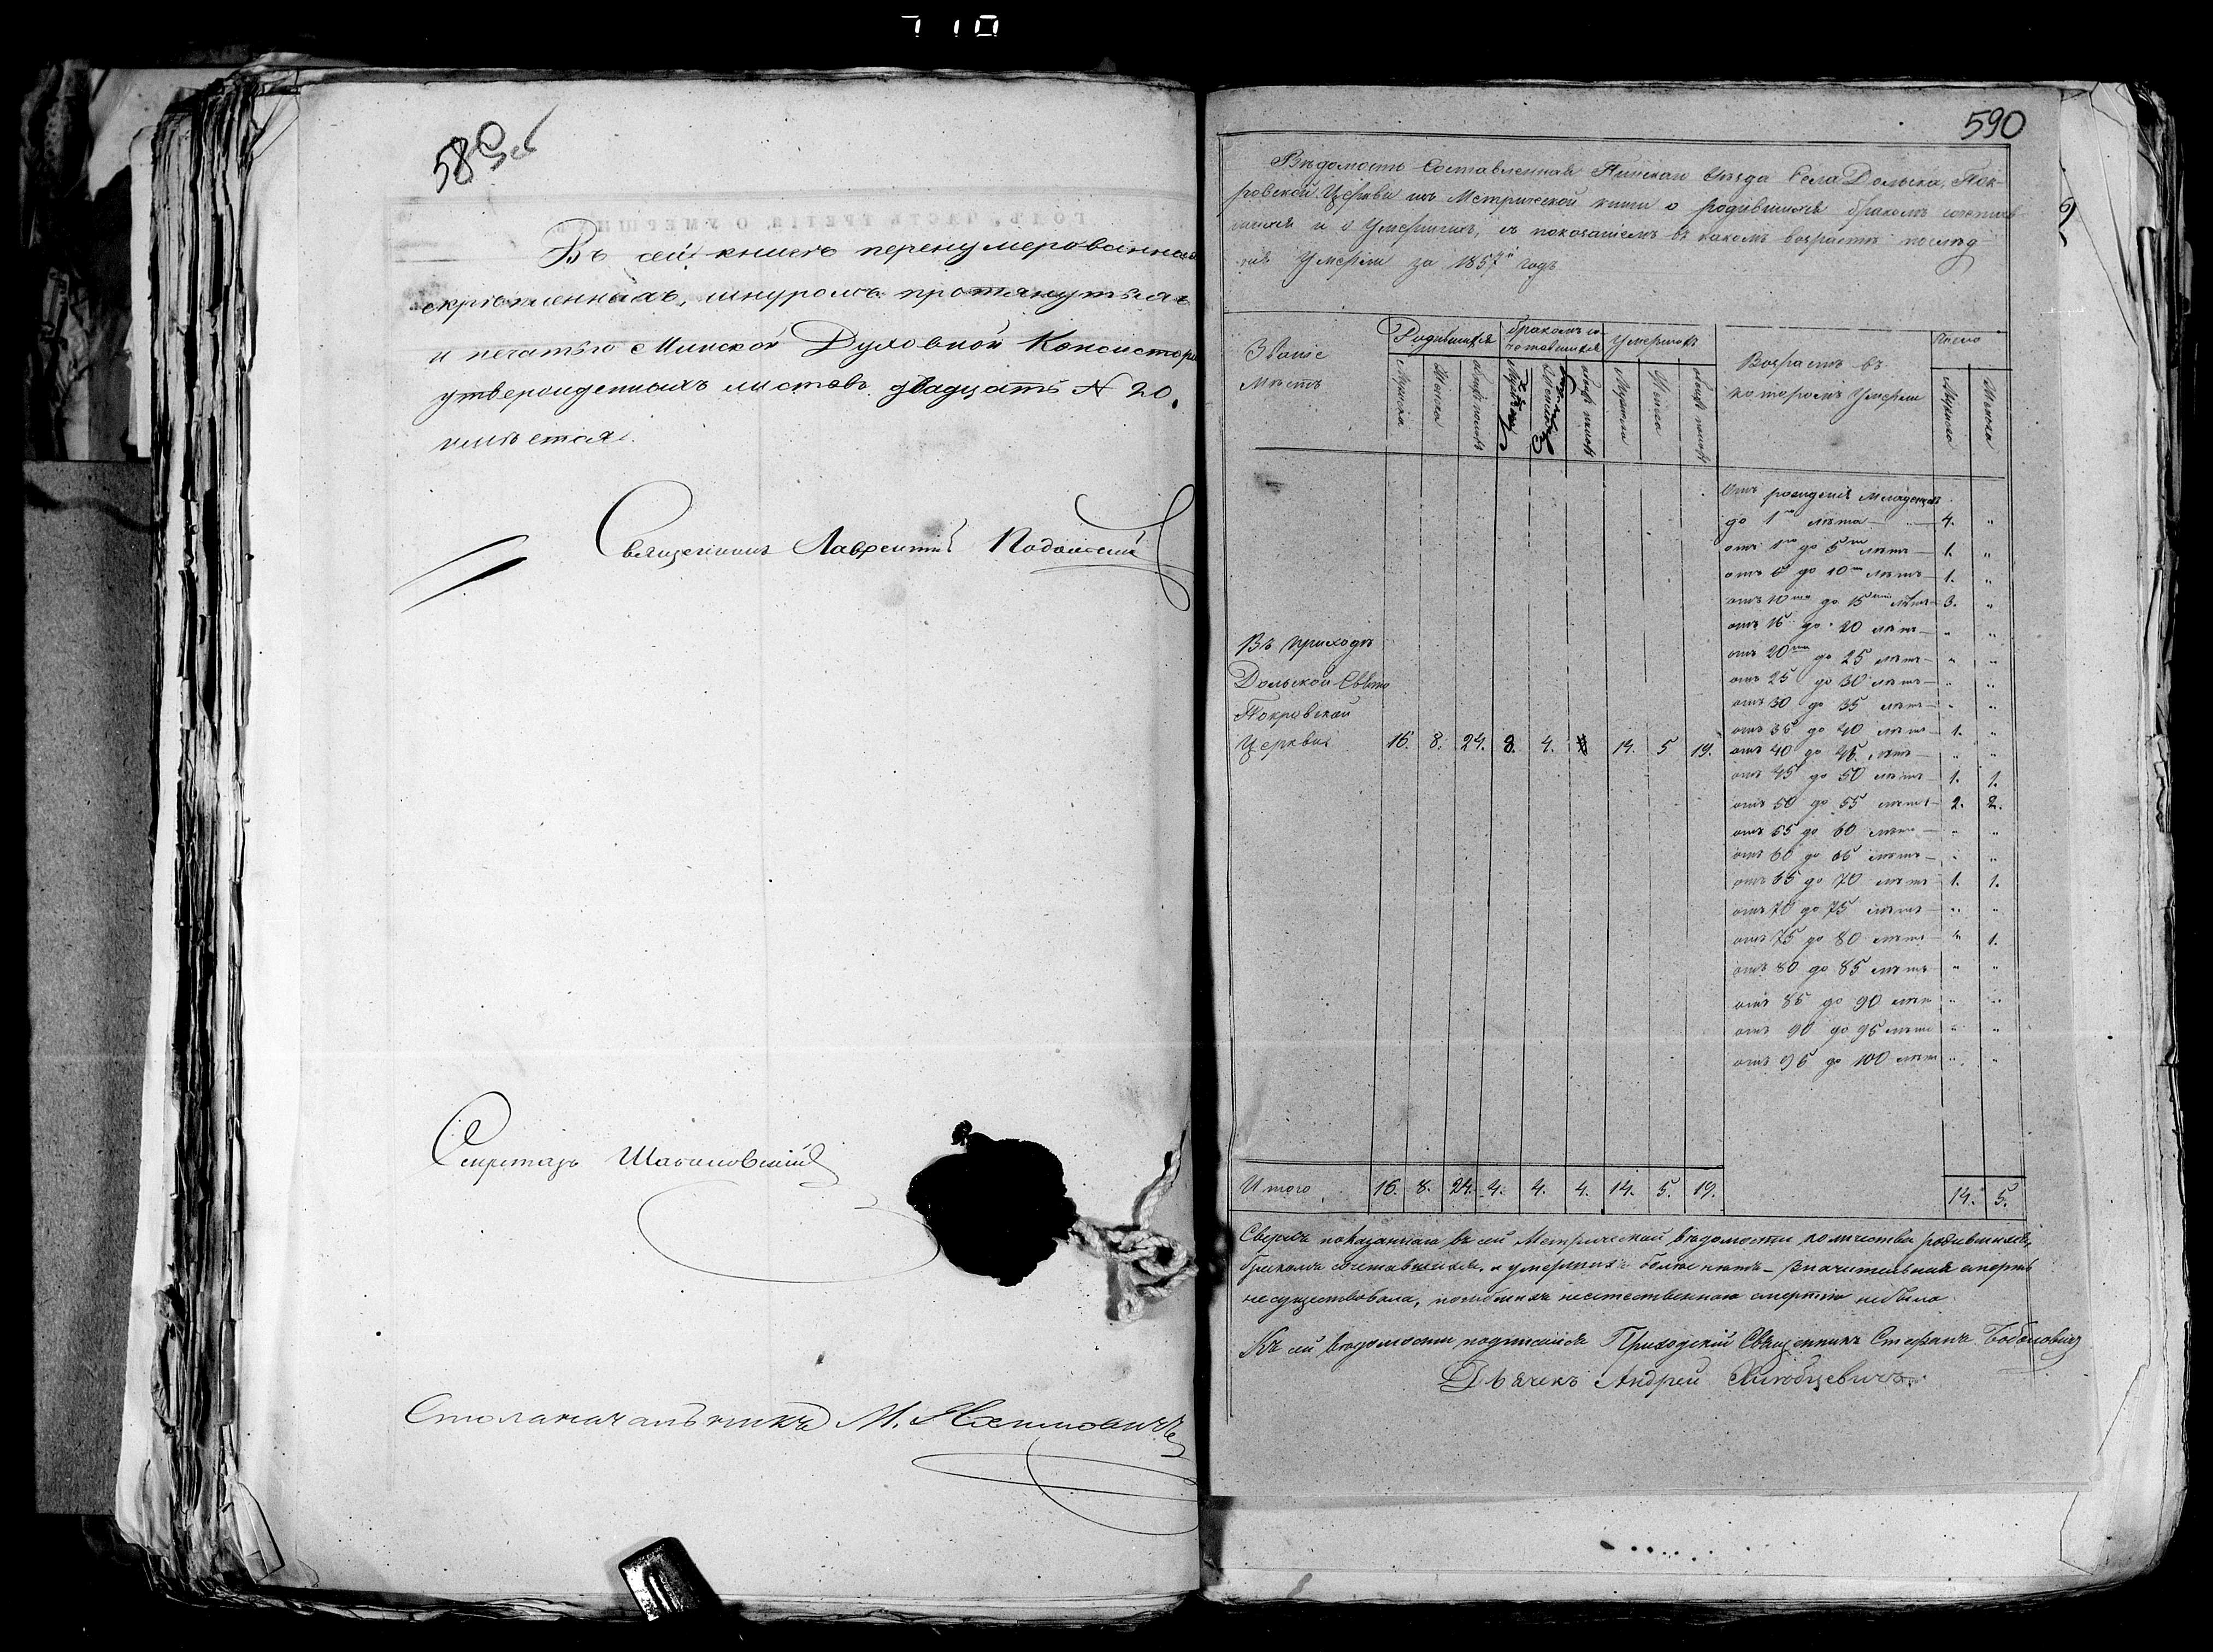 710
589 об
Въ сей книгѣ перенумерованныхъ
скрѣпленныхъ, шнуромъ протянутыхъ
и печатью Минской Духовной Консисторіи
утвержденныхъ листовъ двадцать № 20.
имѣется.
Священникъ Лаврентій
Секретарь
Столоначальникъ М.
590
Вѣдомость Составленная Пинскаго Уѣзда Села Дольска, Пок-
ровской Церкви изъ Метрической книги о родившихся бракомъ сочетав-
шихся и о Умершихъ, съ показаніемъ въ какомъ возрастѣ послѣд-
ніе Умерли за 1857й годъ
Званіе
Мѣстъ
Родившихся
бракомъ со-
четавшихся
Умершихъ
Возрастъ въ
которомъ Умерли
Число
Мужска
Женска
обоихъ половъ
обоихъ половъ
Мужска
Женска
обоихъ половъ
Мужска
Женска
Отъ рожденія младенцевъ
до 1го лѣта — 4. "
отъ 1го до 5ти лѣтъ — 1. "
отъ 5 до 10ти лѣтъ — 1. "
отъ 10ти до 15ти лѣтъ — 3. "
отъ 15 до 20 лѣтъ — " "
отъ 20ти до 25 лѣтъ — " "
отъ 25 до 30 лѣтъ — " "
отъ 30 до 35 лѣтъ — " "
отъ 35 до 40 лѣтъ — 1. "
отъ 40 до 45 лѣтъ — " "
отъ 45 до 50 лѣтъ — 1. 1.
отъ 50 до 55 лѣтъ — 2. 2.
отъ 55 до 60 лѣтъ — " "
отъ 60 до 65 лѣтъ — " "
отъ 65 до 70 лѣтъ 1. 1.
отъ 70 до 75 лѣтъ — " "
отъ 75 до 80 лѣтъ — " 1.
отъ 80 до 85 лѣтъ " "
отъ 85 до 90 лѣтъ " "
отъ 90 до 95 лѣтъ " "
отъ 95 до 100 лѣтъ " "
Въ приходѣ
Дольской Свято
Покровской
Церкви 16. 8. 24. 8. 4. 14. 5 19.
Итого 16. 8. 24. 4. 4. 4. 14. 5. 19. 14. 5.
Сверхъ показаннаго въ сей Метрической вѣдомости количества родившихся,
бракомъ сочетавшихся, и умершихъ болѣе нѣтъ — значительная смерть
не существовала, погибшихъ неестественною смертію небыло.
Къ сей вѣдомости подписался Приходскій Священникъ Стефанъ
Дьячекъ Андрей